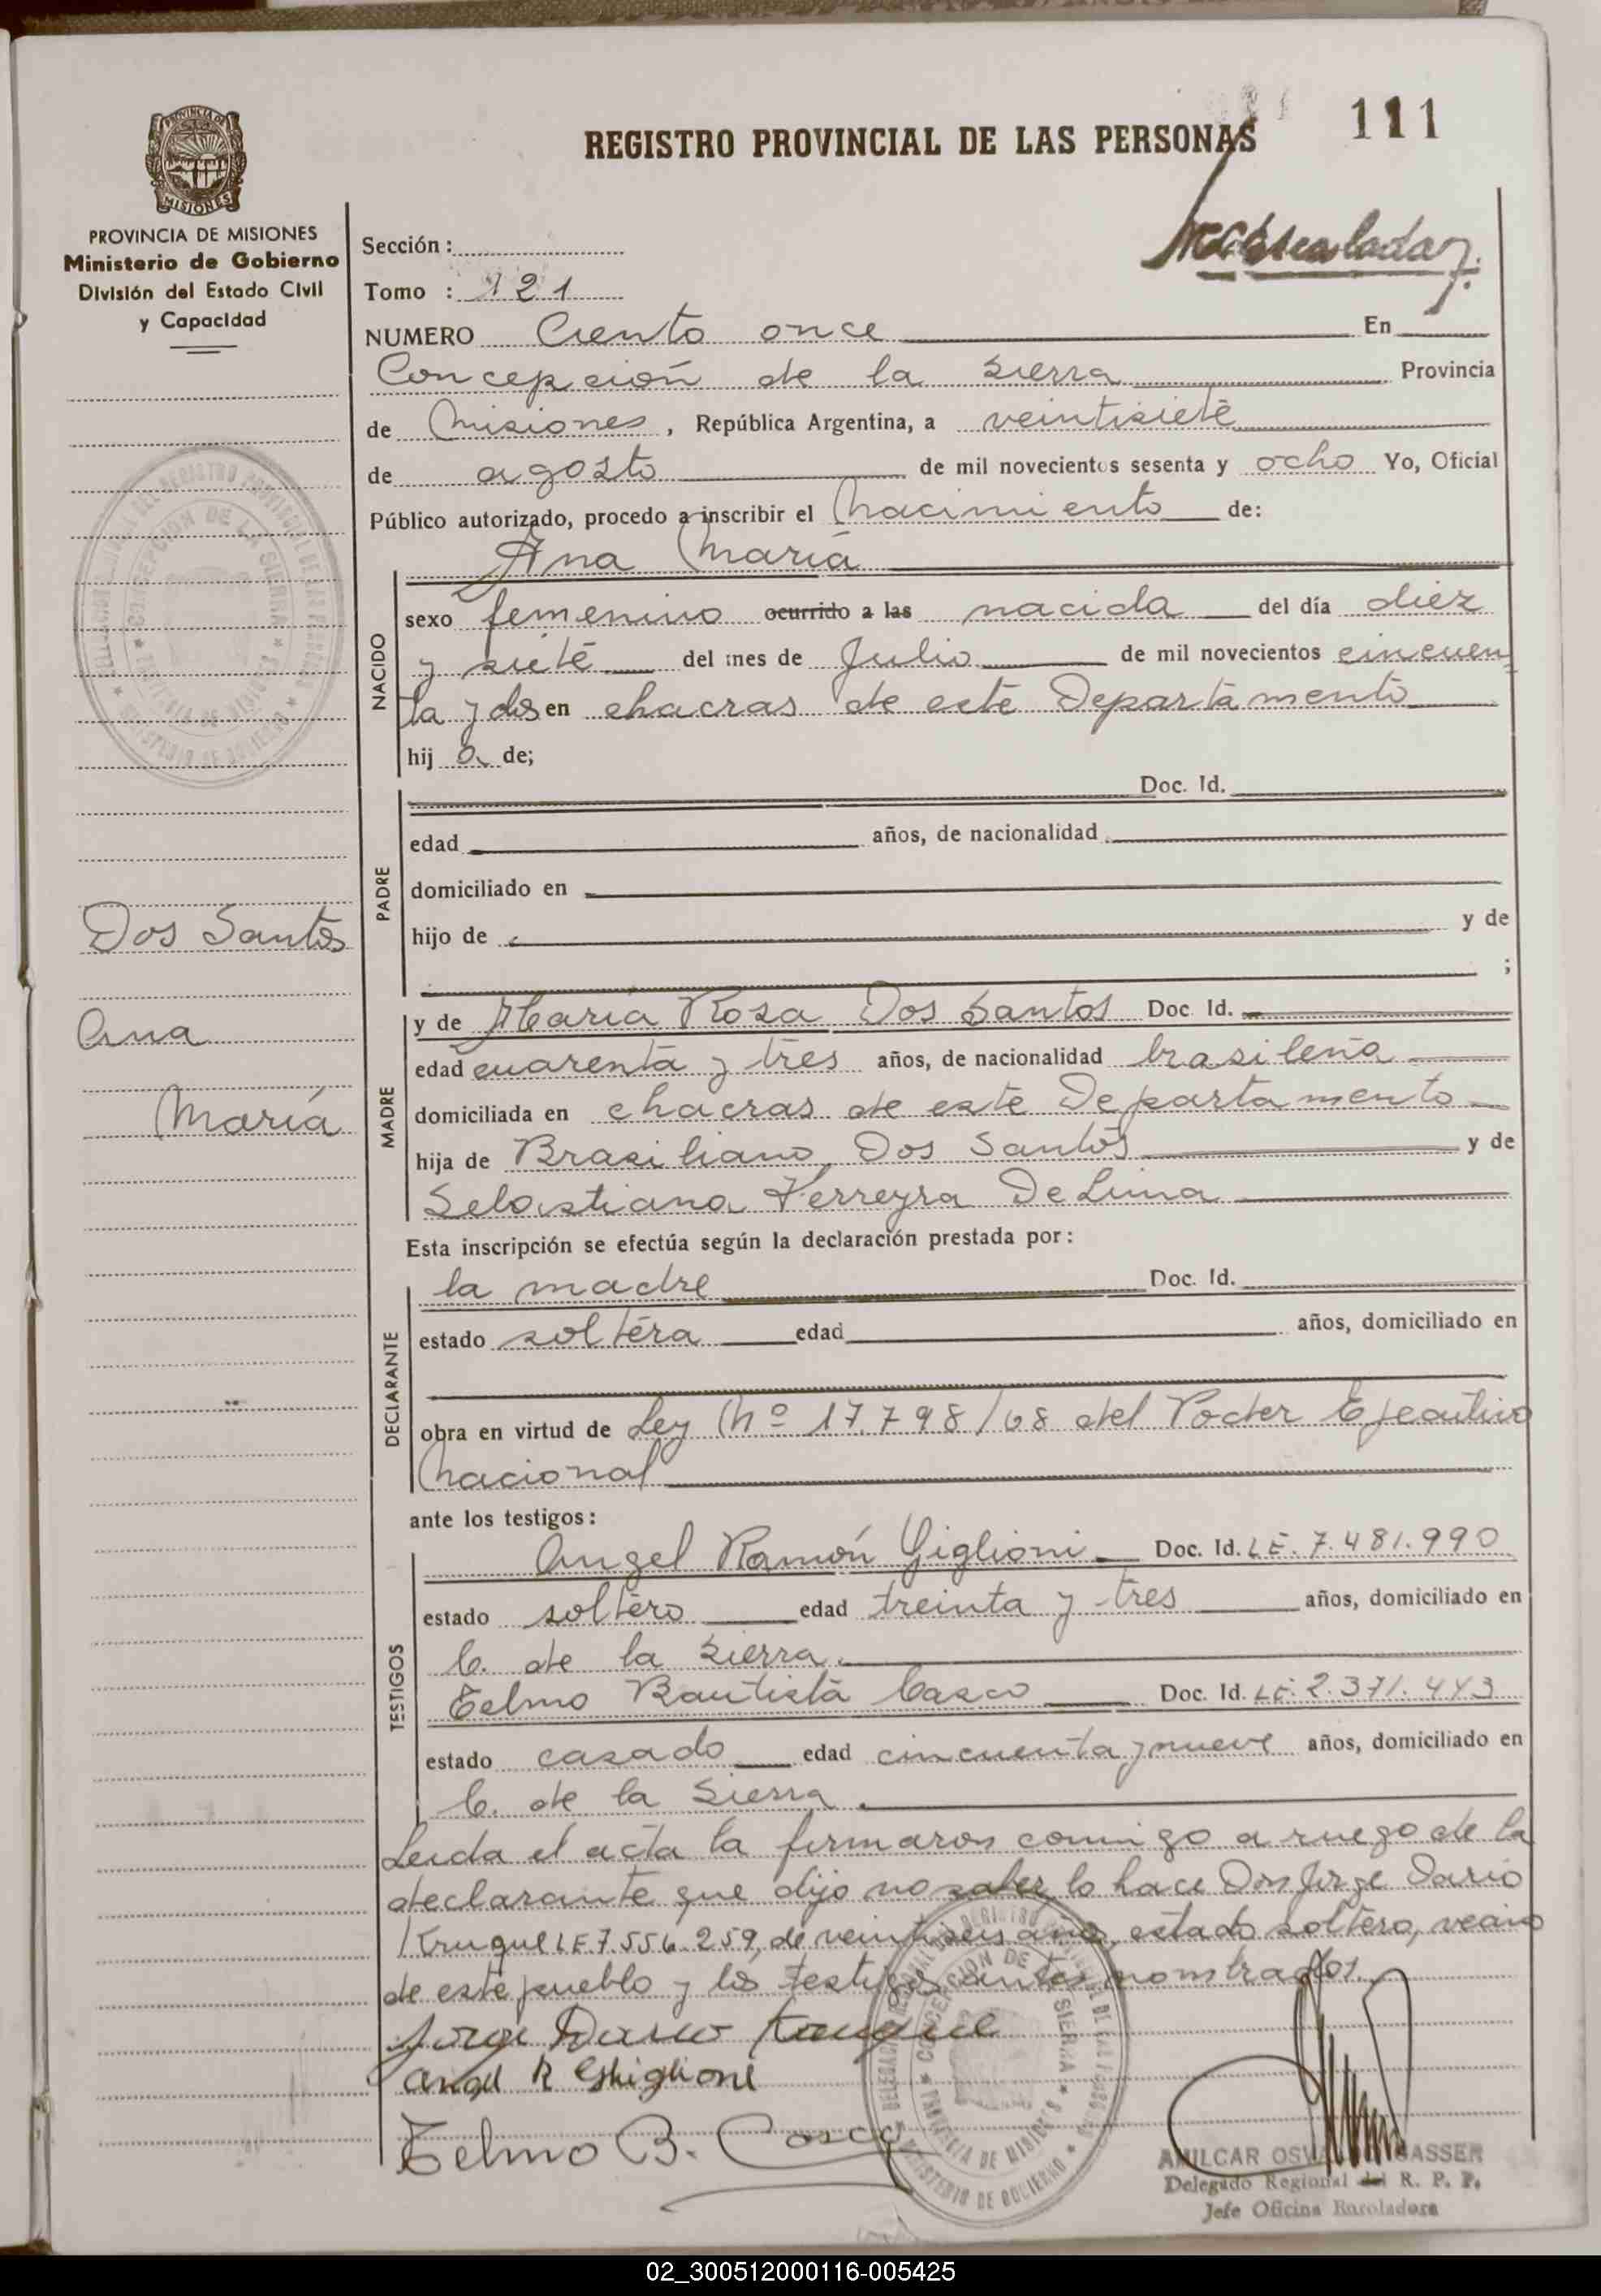 REGISTRO PROVINCIAL DE LAS PERSONAS
111
PROVINCIA DE MISIONES
Ministerio de Gobierno
División del Estado Civil
y Capacidad
Sección :
Tomo : 121
NUMERO Ciento once En
Concepción de la Sierra Provincia
de Misiones, República Argentina, a veintisiete
de agosto de mil novecientos sesenta y ocho Yo, Oficial
Público autorizado, procedo a inscribir el Nacimiento de:
NACIDO
Ana María
sexo femenino ocurrido a las nacida del día diez
y siete del mes de Julio de mil novecientos cincuen
ta y dos en chacras de este Departamento
hij a de;
PADRE
Doc. Id.
edad años, de nacionalidad
domiciliado en
hijo de y de
;
Dos Santos
Ana
María
MADRE
y de María Rosa Dos Santos Doc Id.
edad cuarenta y tres años, de nacionalidad brasileña
domiciliada en chacras de este Departamento
hija de Brasiliano Dos Santos y de
Sebastiana Ferreyra De Lima
Esta inscripción se efectúa según la declaración prestada por:
DECLARANTE
la madre Doc. Id.
estado soltera edad años, domiciliado en
obra en virtud de Ley Nº 17.798/68 del Poder Ejecutivo
Nacional
ante los testigos:
TESTIGOS
Angel Ramón Giglioni Doc. Id. LE. 7.481.990
estado soltero edad treinta y tres años, domiciliado en
C. de la Sierra.
Telmo Bautista Casco Doc. Id. LE. 2.371.443
estado casado edad cincuenta y nueve años, domiciliado en
C. de la Sierra.
Leida el acta la firmaron conmigo a ruego de la
declarante que dijo no saber lo hace Don Jorge Dario
Kruguel LE 7.556.259, de veintiseis años, estado soltero, vecino
de este pueblo y los testigos antes nombrados.
Jorge Dario
Angel R Ghiglione
Telmo B. Casco
DELEGACION REGIONAL DEL REGISTRO PROVINCIAL DE LAS PERSONAS
CONCEPCION DE LA SIERRA
PROVINCIA DE MISIONES
MINISTERIO DE GOBIERNO
AMILCAR GASSER
Delegado Regional del R. P. P.
Jefe Oficina Enroladora
02_300512000116-005425